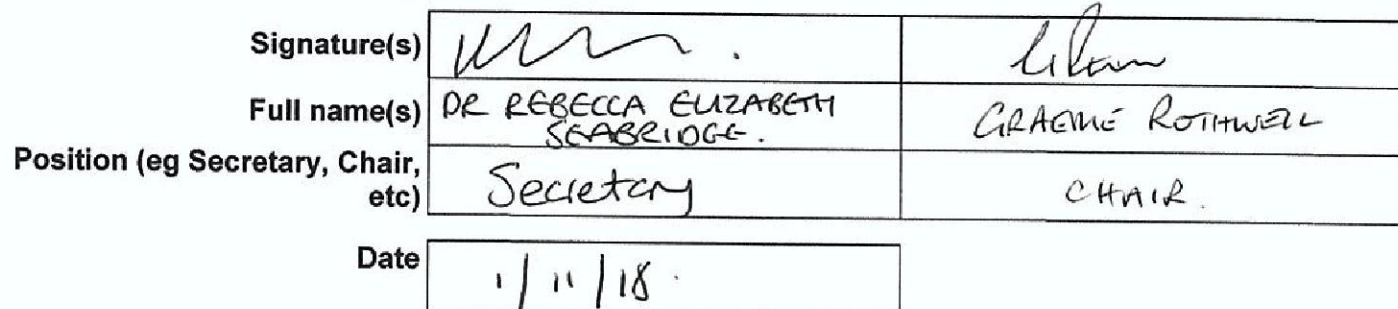 Signature(s)
Full name(s) DR REBECCA ELIZABETH SEABRIDGE. GRAEME ROTHWELL
Position (eg Secretary, Chair, etc) Secretary CHAIR.
Date 1/11/18.